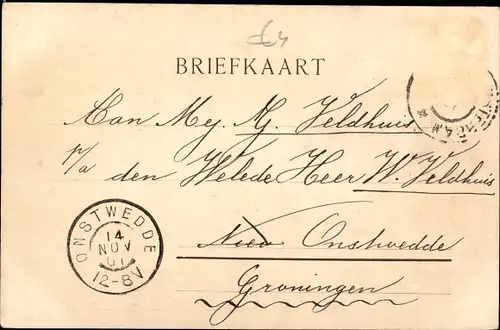 £4
BRIEFKAART
Aan Mej. Aj. Veldhuis.
p/a den Weledé Heer W. Veldhuis
Nieuw Onstwedde
Groningen
ONSTWEDDE
14
NOV
01
12-8V